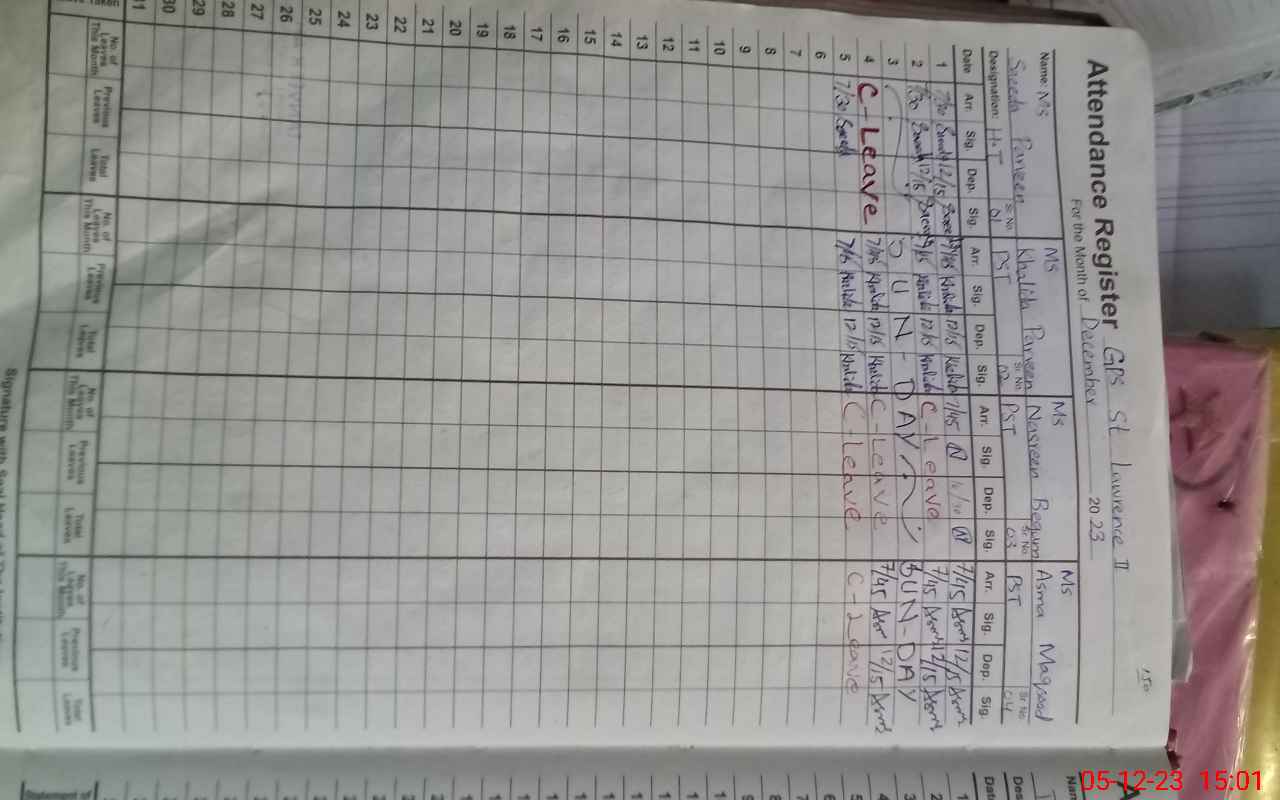 150
Attendance Register GPS St Lawrence II
For the Month of December 2023
Name: Ms Saeeda Parveen
Ms Khalida Parveen
Ms Nasreen Begum
Ms Asma Maqsood
Designation: H.T Sr No. 01
PST Sr No. 02
PST Sr No. 03
PST Sr No. 04
Date Arr. Sig. Dep. Sig. Arr. Sig. Dep. Sig. Arr. Sig. Dep. Sig. Arr. Sig. Dep. Sig.
1 7/30 12/15 7/45 Khalida 12/15 Khalida 7/45 N N 7/45 Asma 12/15 Asma
2 7/30 12/15 Khalida 12/15 Khalida C-Leave 7/45 Asma 12/15 Asma
3 SUN-DAY SUN-DAY
4 C-Leave 7/45 Khalida 12/15 Khalida C-Leave 7/45 Asma 12/15 Asma
5 7/30 Saeeda 7/45 Khalida 12/15 Khalida C-Leave C-Leave
6
7
8
9
10
11
12
13
14
15
16
17
18
19
20
21
22
23
24
25
26
27
28
29
30
31
No. of Leaves This Month Previous Leaves Total Leaves No. of Leaves This Month Previous Leaves Total Leaves No. of Leaves This Month Previous Leaves Total Leaves No. of Leaves This Month Previous Leaves Total Leaves
Signature with Seal Head of
05-12-23 15:01